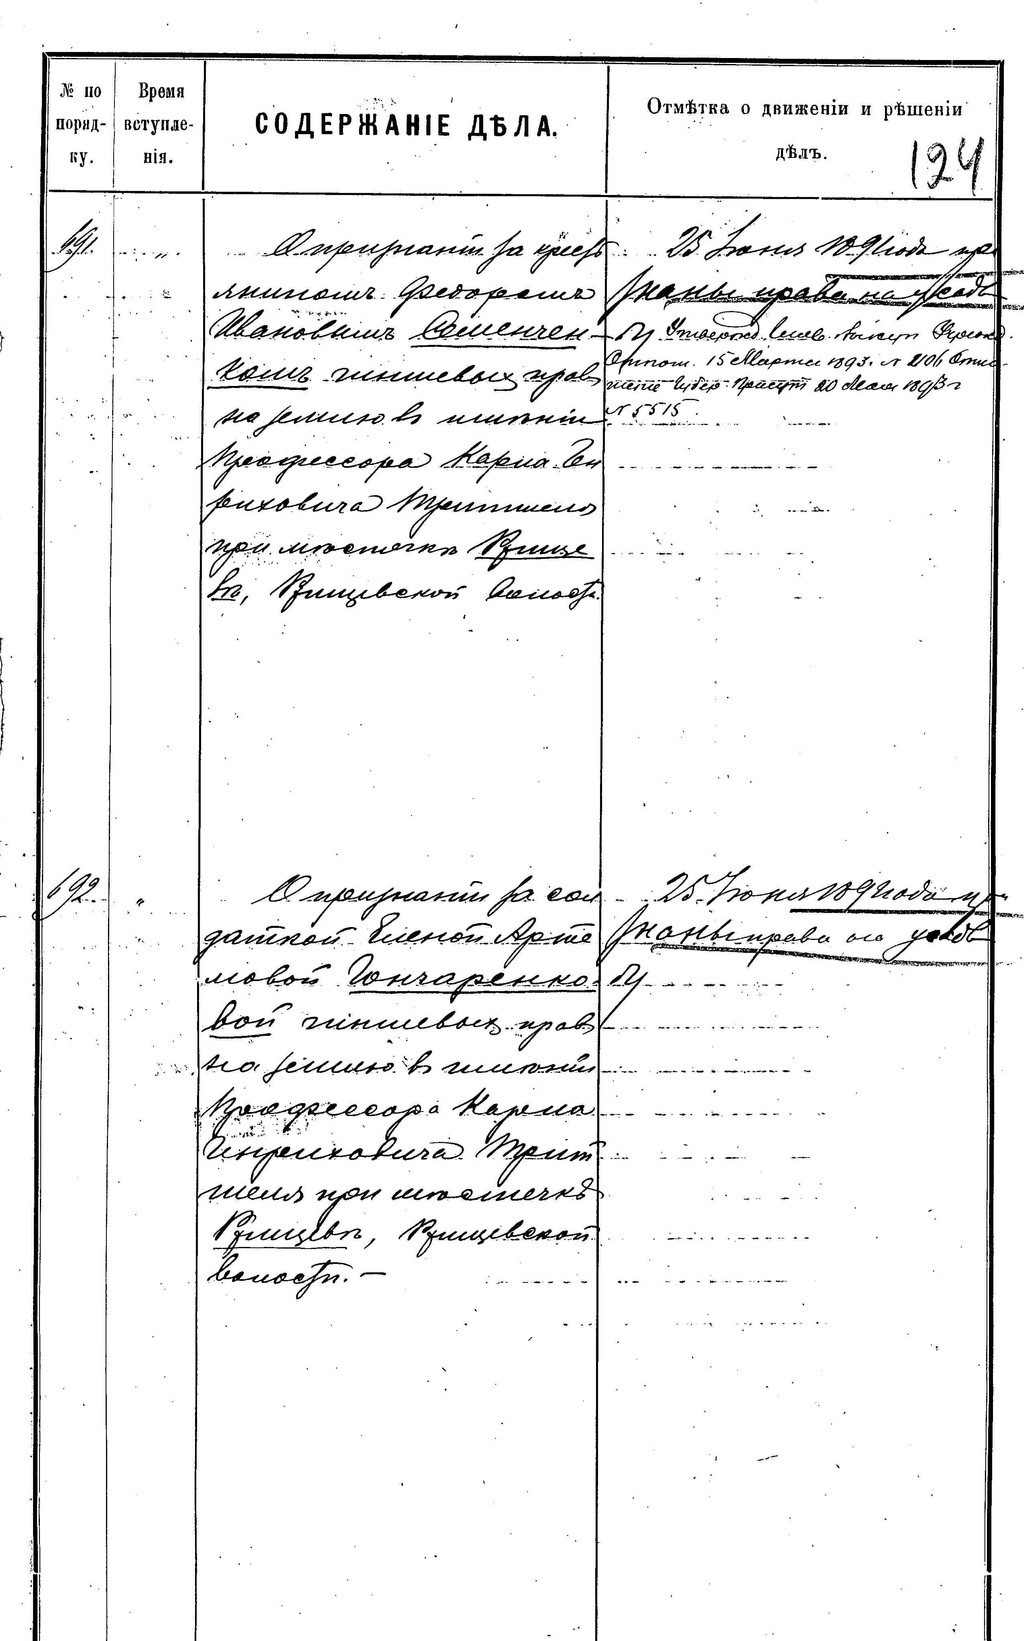 № по порядку.
Время вступленія.
СОДЕРЖАНІЕ ДѢЛА.
Отмѣтка о движеніи и рѣшеніи
дѣлъ.
124
691.
О признаніи за крест
яниномъ Федоромъ
Ивановымъ Семенчен-
комъ чиншевыхъ правъ
на землю въ имѣніи
Профессора Карла Ген
риховича Тритшеля
при мѣстечкѣ Ржище
вѣ, Ржищевской волости.
25 Іюня 1891 года при
знаны права на усадь
бу
15 Марта 1893 г. № 2106
20 Мая 1893 г
№ 5515
692.
О признаніи за сол
даткой Еленой Арте
мовой Гончаренко-
вой чиншевыхъ правъ
на землю въ имѣніи
Профессора Карла
Генриховича Трит
шеля при мѣстечкѣ
Ржищевѣ, Ржищевской
волости. —
25 Іюня 1891 года при
знаны права на усадь
бу